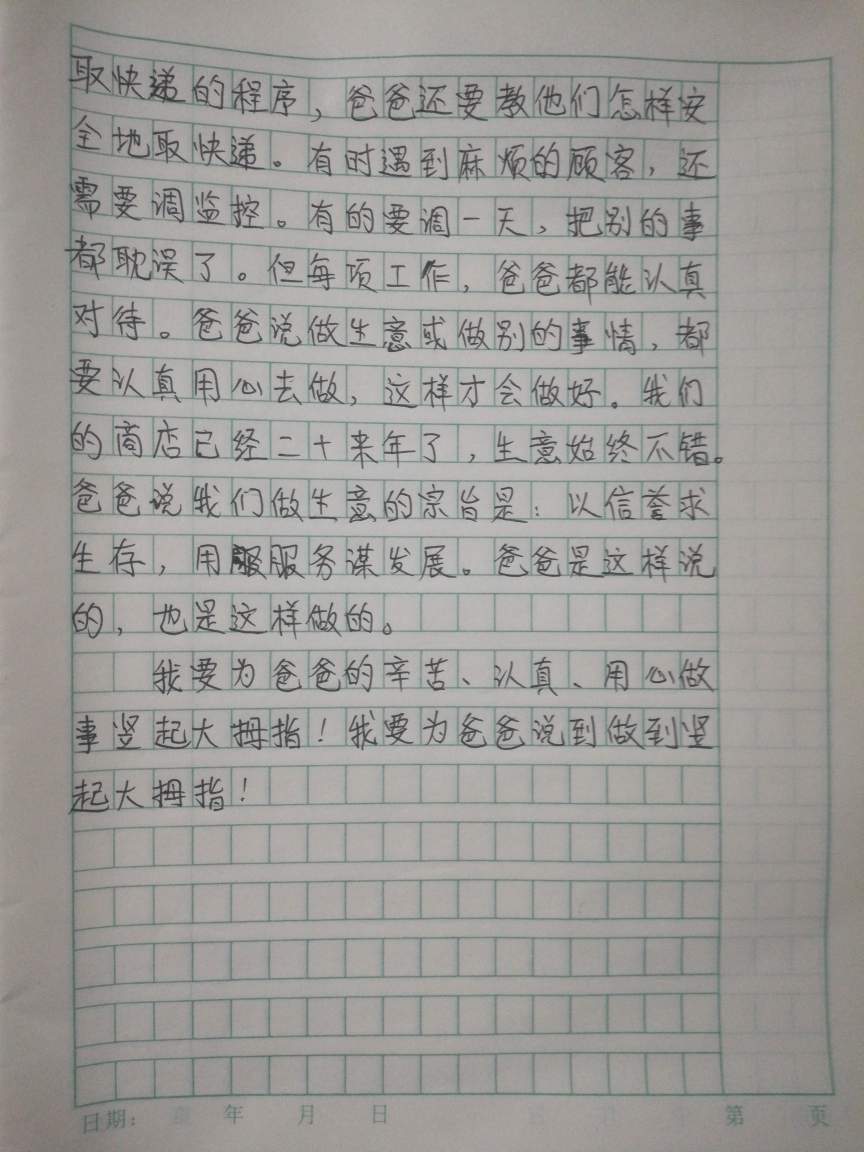 取快递的程序，爸爸还要教他们怎样安
全地取快递。有时遇到麻烦的顾客，还
需要调监控。有的要调一天，把别的事
都耽误了。但每项工作，爸爸都能认真
对待。爸爸说做生意或做别的事情，都
要认真用心去做，这样才会做好。我们
的商店已经二十来年了，生意始终不错。
爸爸说我们做生意的宗旨是：以信誉求
生存，用服务谋发展。爸爸是这样说
的，也是这样做的。
我要为爸爸的辛苦、认真、用心做
事竖起大拇指！我要为爸爸说到做到竖
起大拇指！
日期：年月日 第页